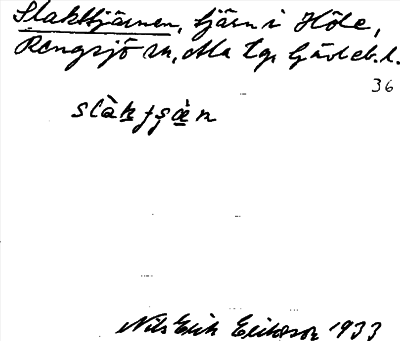 Slakttjärnen, tjärn i Höle,
Rengsjö sn, Ala tgs Gävleb. l.
36
Nils Erik Eriksson 1933